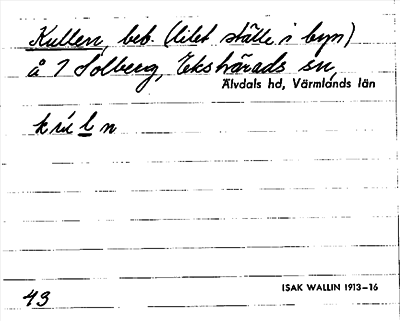 Kullen, beb. (litet ställe i byn)
å 7 Solberg, Ekshärads sn,
Älvdals hd, Värmlands län
ku̇ln
ISAK WALLIN 1913–16
43